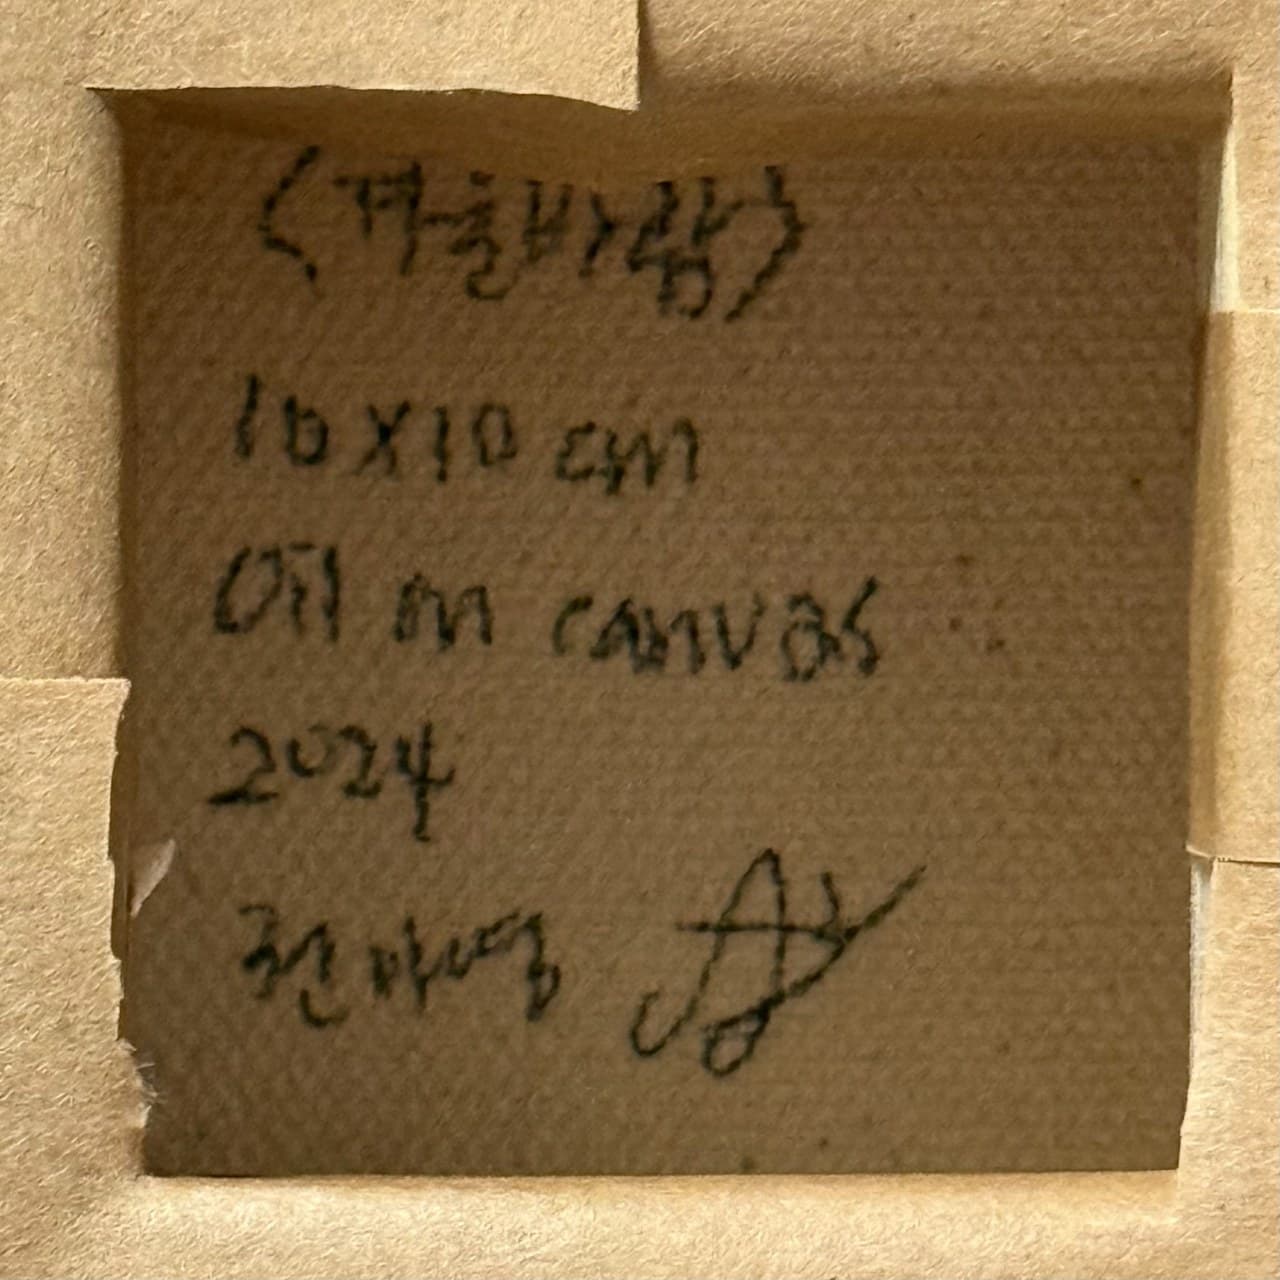 <겨울바람>
10x10 cm
Oil on canvas
2024